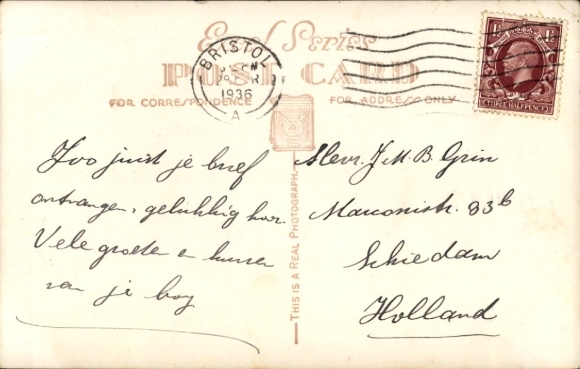 Excel Series
POST CARD
FOR CORRESPONDENCE
FOR ADDRESS ONLY
BRISTOL
1936
A
1½
THREE HALFPENCE
THIS IS A REAL PHOTOGRAPH.
Zoo juist je brief
ontvangen, gelukkig hoor
Vele groeten en kussen
van je boy
Mevr. J. M. B. Grin
Marconistr. 83b
Schiedam
Holland